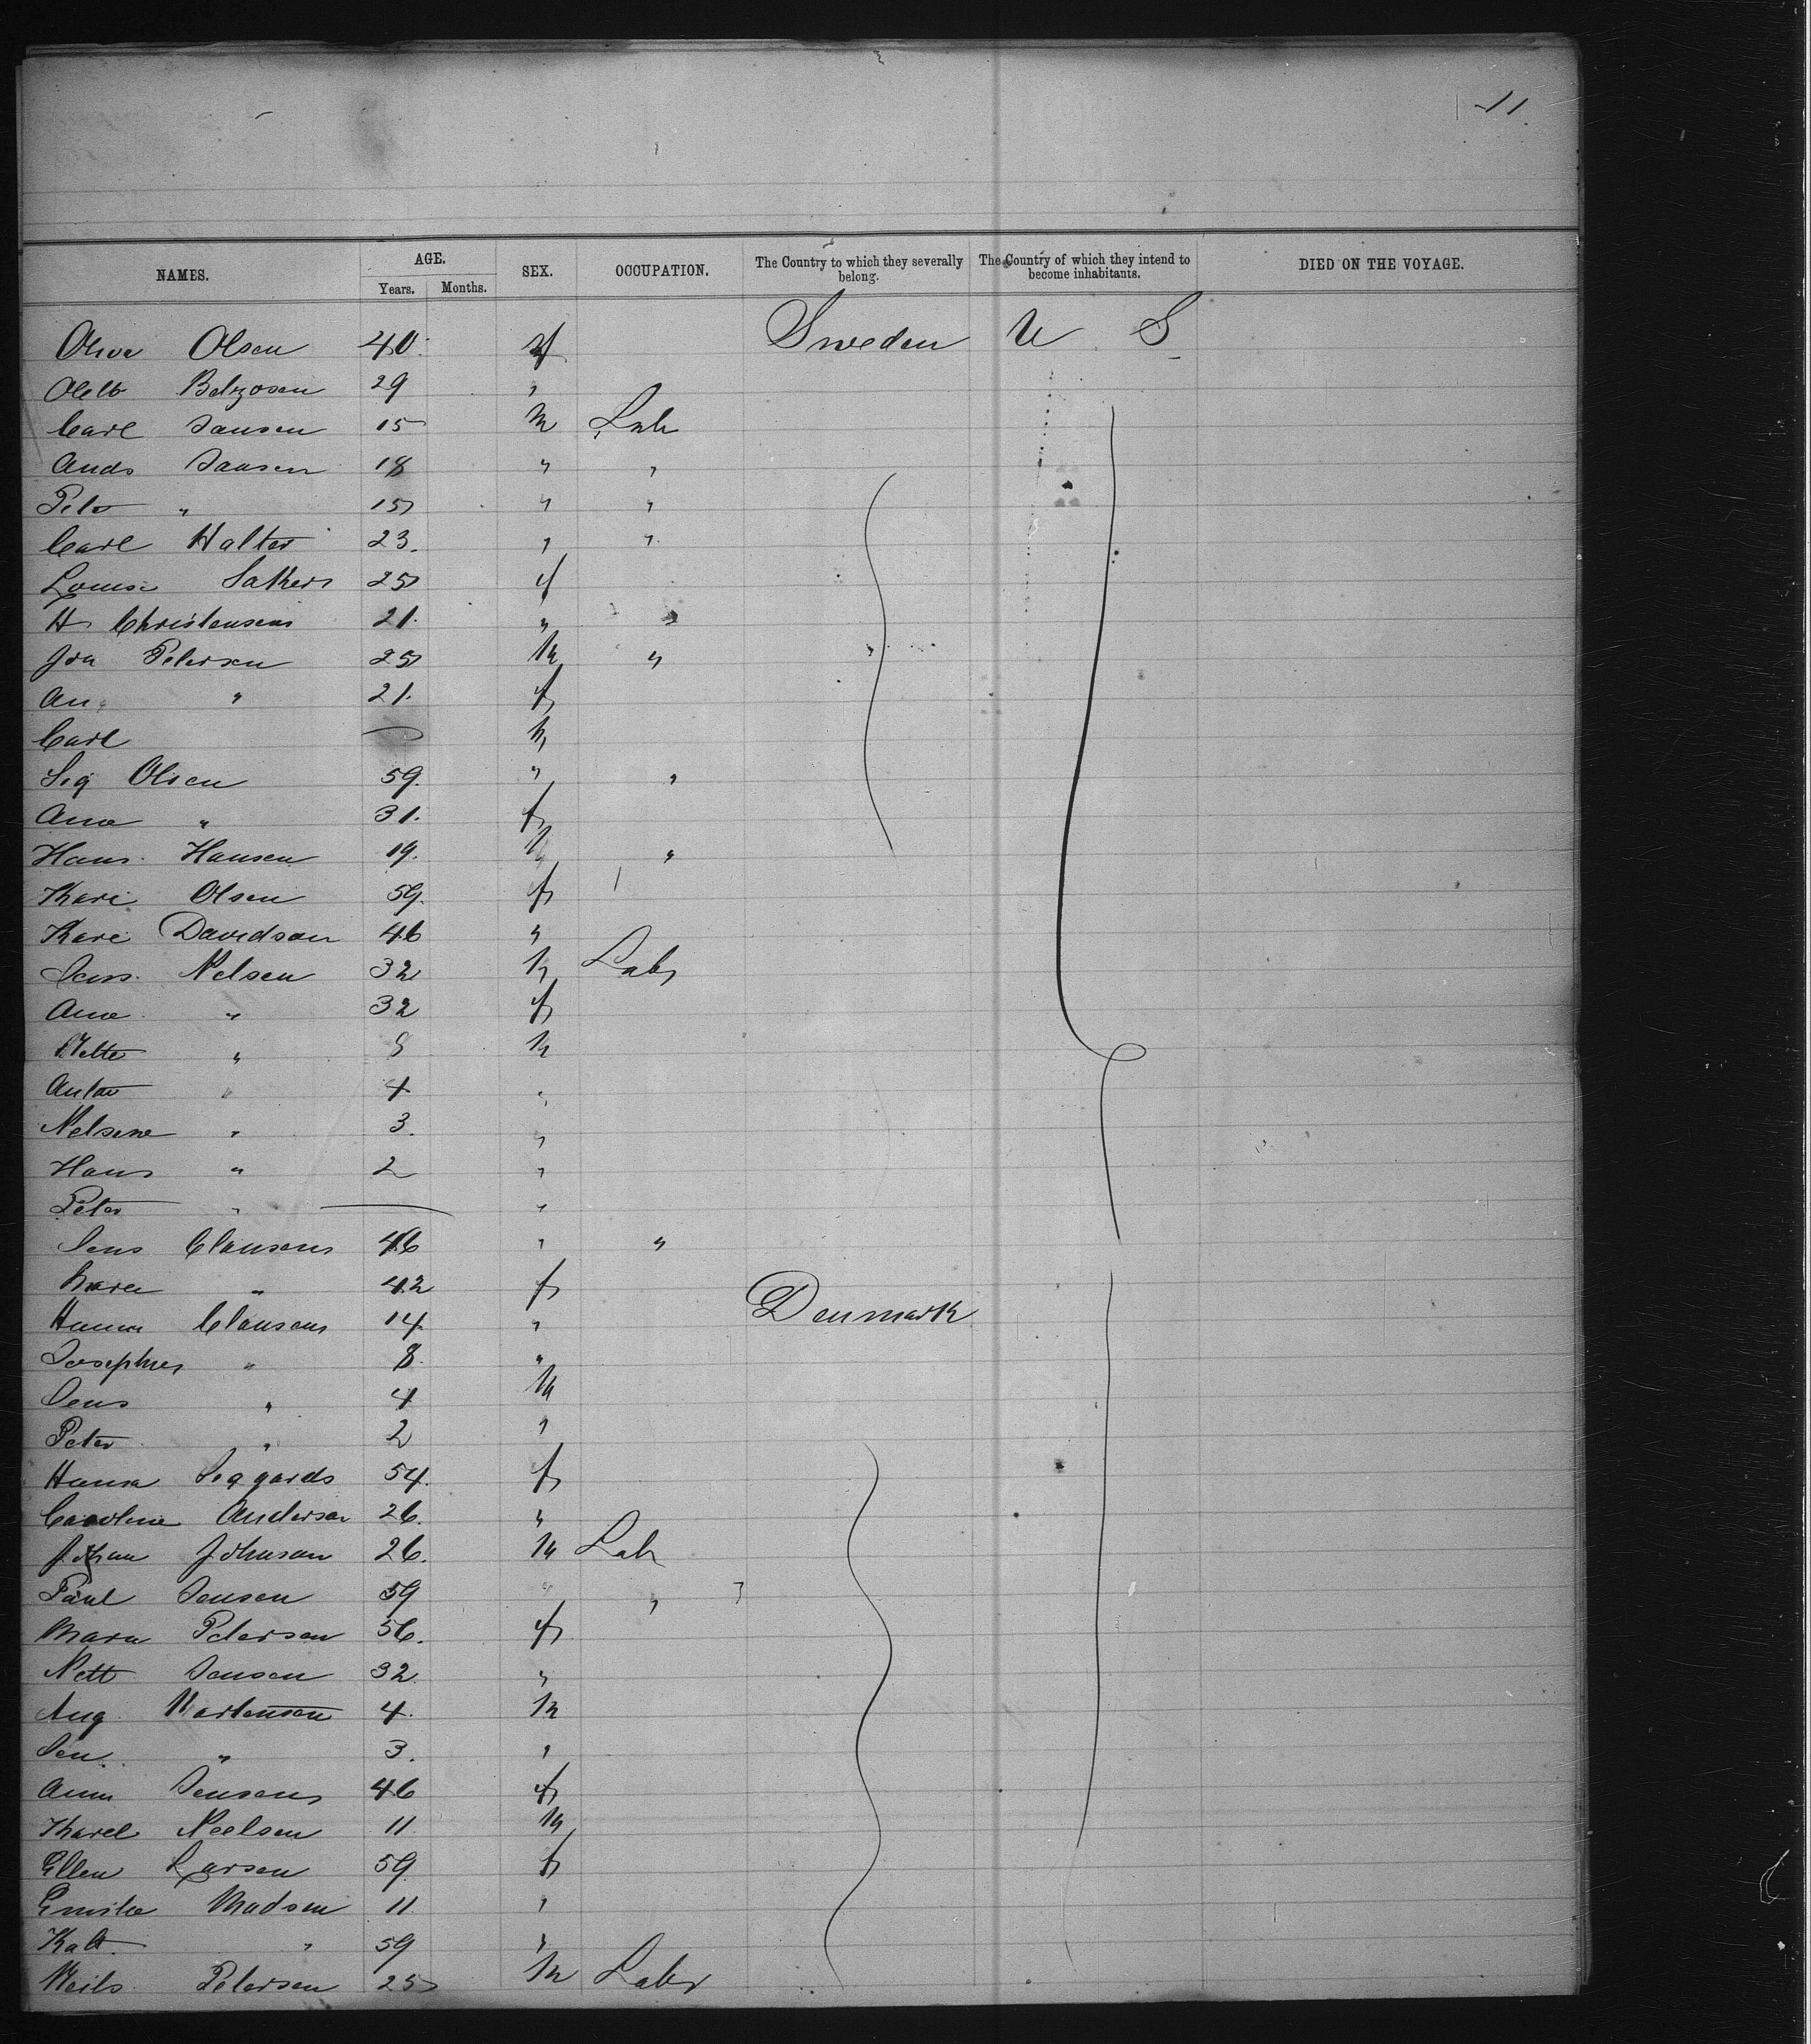 11.
NAMES. AGE. SEX. OCCUPATION. The Country to which they severally belong. The Country of which they intend to become inhabitants. DIED ON THE VOYAGE.
Years. Months.
Olsen 40. f Sweden U S
29 "
Carl Jansen 15 M Lab
Ands Jansen 18 " "
Peter " 15 " "
Carl Halter 23. " "
Louise 25 f
H Christensen 21. " "
Petersen 25 M "
An " 21. f
Carl M
Sig Olsen 59. " "
Ane " 31. f
Hans Hansen 19. M "
Kari Olsen 59. f
Kare Davidson 46 "
Jens Nelsen 32 M Lab
Ane " 32 f
" 8 M
Anton " 4 "
Nelsine " 3. "
Hans " 2 "
Peter " — "
Jens Clausen 46 " "
Maren " 42 f Denmark
Hanna Clausen 14 "
Josephine " 8. "
Jens " 4 M
Peter " 2 "
54. f
Caroline Anderson 26. "
Johan Johnson 26. M Lab
Paul Jensen 59 " "
Maria Petersen 56. f
Nett Jensen 32 "
Aug Mortensen 4. M
Jen " 3. "
Ann Jensen 46 f
Karel Neelsen 11 M
Ellen Larsen 59 f
Emilie Madsen 11 "
Kat " 59 "
Neils Petersen 25 M Labr